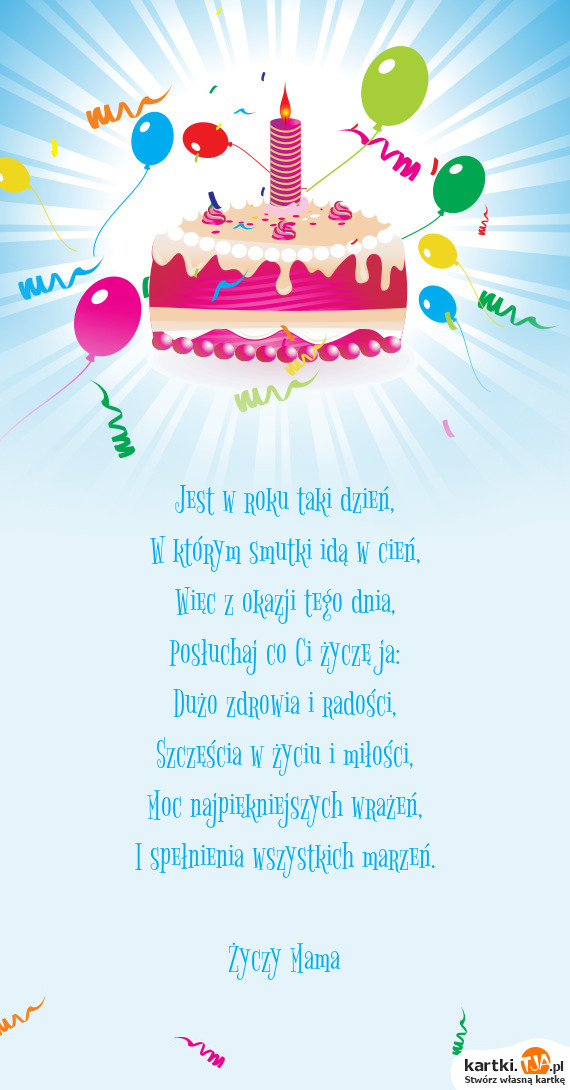 Jest w roku taki dzień,
W którym smutki idą w cień,
Więc z okazji tego dnia,
Posłuchaj co Ci życzę ja:
Dużo zdrowia i radości,
Szczęścia w życiu i miłości,
Moc najpiękniejszych wrażeń,
I spełnienia wszystkich marzeń.
Życzy Mama
kartki.TJA.pl
Stwórz własną kartkę